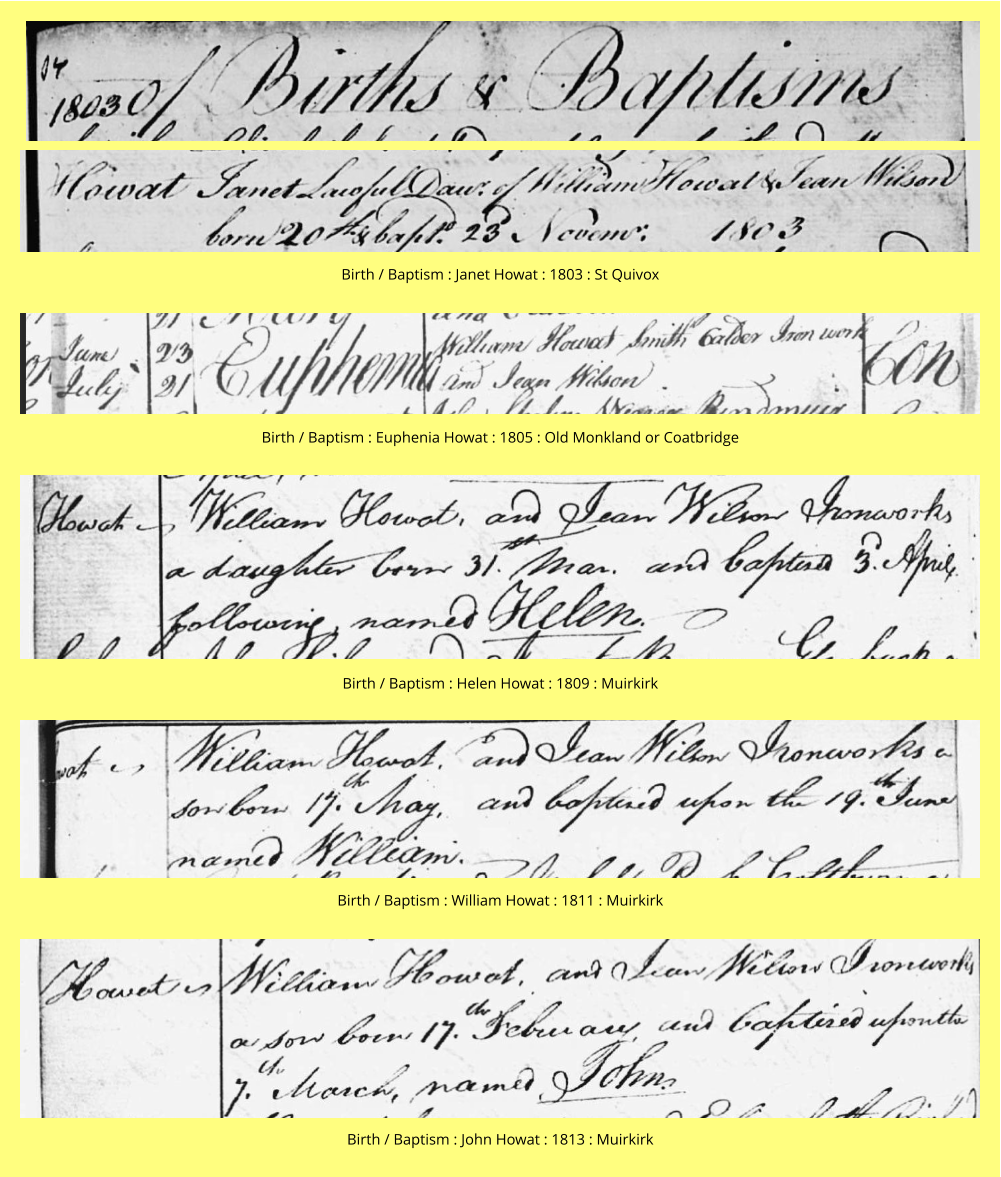 14
1803 Of Births & Baptisms
Howat Janet Lawful Dawr. of William Howat & Jean Wilson
born 20th & bapt. 23 Novemr. 1803
Birth / Baptism : Janet Howat : 1803 : St Quivox
21 Mary
June 23 Euphemia William Howat Smith Calder Iron work Con
July 21 and Jean Wilson
Birth / Baptism : Euphenia Howat : 1805 : Old Monkland or Coatbridge
Howat William Howat, and Jean Wilson Ironworks
a daughter born 31.st Mar. and baptised 3.d April
following, named Helen.
Birth / Baptism : Helen Howat : 1809 : Muirkirk
wat William Howat, and Jean Wilson Ironworks a
son born 17.th May, and baptised upon the 19.th June
named William.
Birth / Baptism : William Howat : 1811 : Muirkirk
Howat William Howat, and Jean Wilson Ironworks
a son born 17.th February, and baptised upon the
7.th March, named John.
Birth / Baptism : John Howat : 1813 : Muirkirk